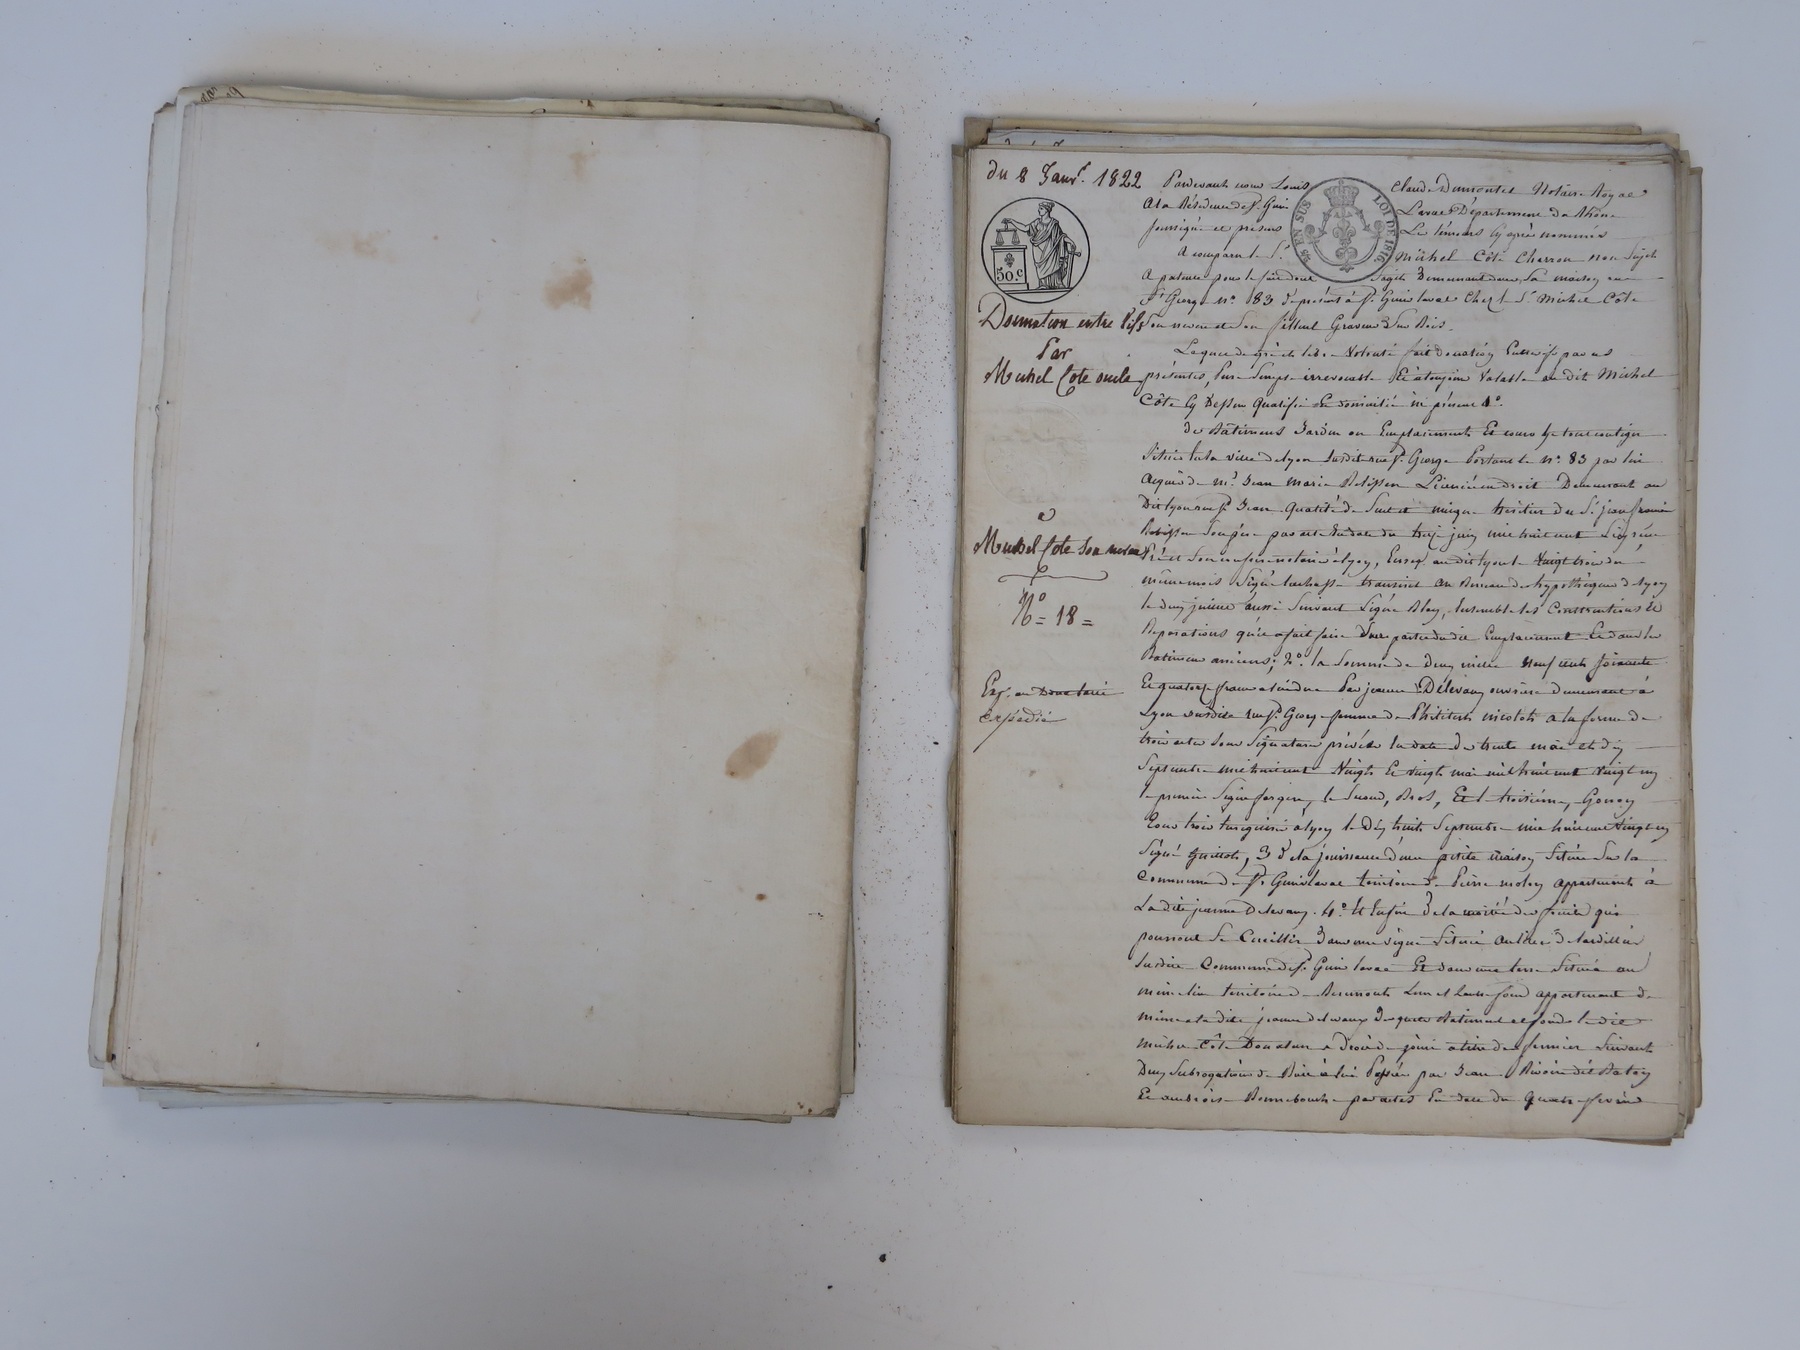 du 8 Janvr. 1822
50. c
EN SUS LOI DE 1816
Donnation entre vifs
Par
Michel Cote oncle
a
Michel Cote son neveu
No = 18 =
Exp. au Donataire
expédié
Pardevant nous Louis Claude Dumortet Notaire Royal
A la Résidence de St. Genis Laval Département du Rhône
soussigné et présens Les témoins cy après nommés
A comparu le Sr. Michel Côte Charron non sujet
A patente pour le fait dont s'agit Demeurant dans sa maison rue
St George no. 83 De présent à St. Genis laval Chez le Sr. Michel Côte
Son neveu et Son filleul Graveur Sur Bois.
Lequel de gré et libre Volonté fait donation Entre vifs par ces
présentes, Pure Simple irrevocable Et à toujours Valable au dit Michel
Côte Cy Dessus Qualifié Et domicilié ici présent 1o.
des Bâtimens Jardin ou Emplacement Et cours le tout contigu
Situés En la ville de Lyon Susdite rue St. George Portant le no. 83 par lui
Acquis de Mr. Jean Marie Licencié en droit Demeurant au
Dit Lyon rue St. Jean Qualité de Seul et unique héritier du Sr. jean
Son père par acte En date du treize juin mil huit cent
Et Son confrère notaires à Lyon, Enreg. au dit Lyon le Vingt trois du
même mois Signé transcrit au Bureau des hypothèques de Lyon
le deux aussi Suivant Signé Ensemble les Constructions Et
Réparations qu'il a fait faire Sur partie du dit Emplacement Et dans les
Batimens anciens; 2o. la Somme de deux mille neuf cents soixante
Et quatorze francs à lui due Par jeanne Délévaux ouvrière demeurant à
Lyon susdite rue St. George femme de nicolot a la forme de
trois actes Sous Signature privée En date des trente mai et dix
Septembre mil huit cent Vingt Et vingt mai mil huit cent vingt un
le premier Signé le Second, Et le troisième,
Tous trois Enregistrés à Lyon le Dix huit Septembre mil huit cent Vingt un
Signé Guillot, 3o de la jouissance d'une petite maison Située Sur la
Commune de St. Genis laval territoire de appartenant à
La dite jeanne Delevaux. 4o. Et Enfin de la moitié des fruits qui
pourront Se Cueillir dans une vigne Située au lieu
Susdite Commune de St. Genis laval Et dans une terre Située au
même lieu territoire de appartenant de
même a la dite jeanne delevaux Desquels Batiment et fonds le dit
Michel Côte Donateur a Droit de jouir a titre de fermier Suivant
Deux Subrogations de Bail à lui Passées par Jean
Et par actes En date du quatre février